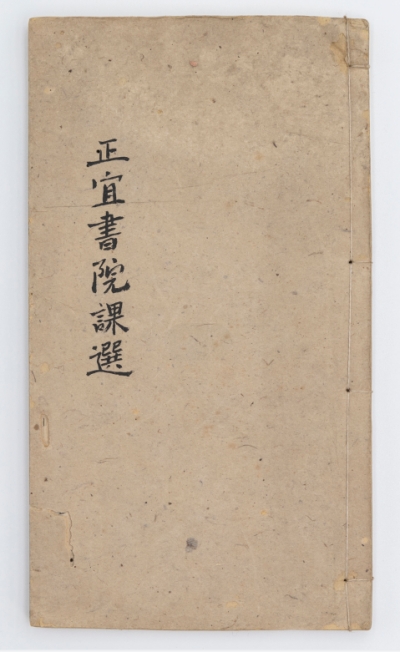 正宜書院課選